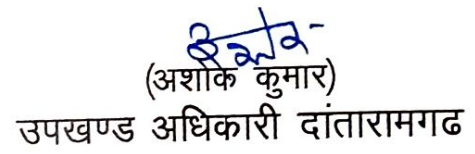 (अशोक कुमार)
उपखण्ड अधिकारी दांतारामगढ